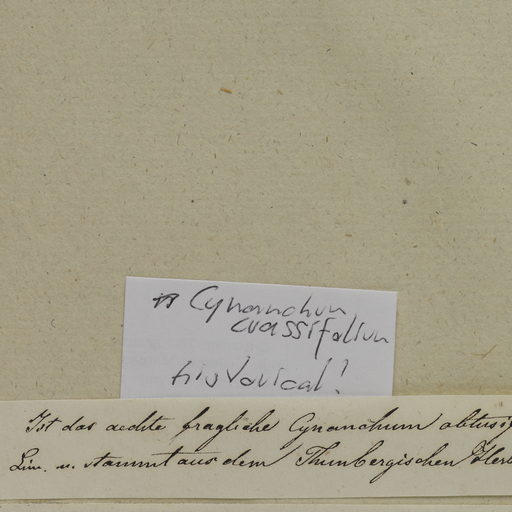 Cynanchum
crassifolium
historical!
Ist das aechte fragliche Cynanchum obtusif
Lin. u. stammt aus dem Thunbergischen Herb